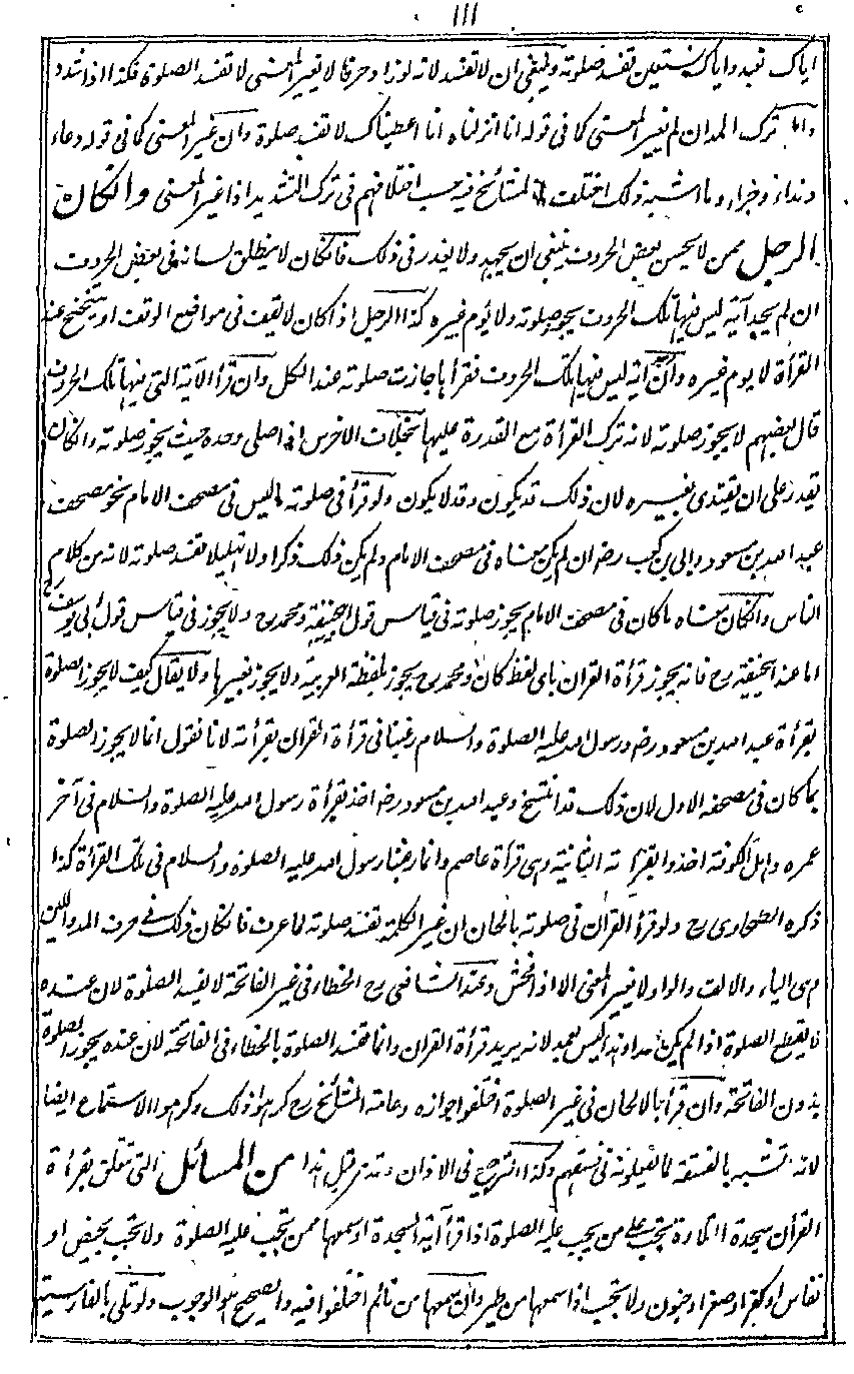 ١١١
اياك نعبد واياك نستعين تفسد صلوته وينبغي ان لا تفسد لانه لو زاد حرفا لا يغير المعنى لا تفسد الصلوة فكذا اذا شدد
واما ترك المد ان لم يغير المعنى كما في قوله انا انزلناه انا اعطيناك لا تفسد صلوة وان غير المعنى كما في قوله دعاء
ونداء وجزاء وما اشبه ذلك اختلفت المشائخ فيه حسب اختلافهم في ترك التشديد اذا غير المعنى وانكان
الرجل ممن لا يحسن بعض الحروف ينبغي ان يجهد ولا يعذر في ذلك فانكان لا ينطلق لسانه في بعض الحروف
ان لم يجد آية ليس فيها تلك الحروف يجوز صلوته ولا يؤم غيره كذا الرجل اذا كان لا يقف في مواضع الوقف او يتنحنح عند
القرأة لا يؤم غيره وان وجد آية ليس فيها تلك الحروف فقرأ بها جازت صلوته عند الكل وان قرأ الآية التي فيها تلك الحروف
قال بعضهم لا يجوز صلوته لانه ترك القرأة مع القدرة عليها بخلاف الاخرس اذا صلى وحده حيث يجوز صلوته وانكان
يقدر على ان يقتدى بغيره لان ذلك قد يكون وقد لا يكون ولو قرأ في صلوته ما ليس في مصحف الامام نحو مصحف
عبد الله بن مسعود وابي بن كعب رضـ ان لم يكن معناه في مصحف الامام ولم يكن ذلك ذكرا ولا تهليلا تفسد صلوته لانه من كلام
الناس وانكان معناه ما كان في مصحف الامام يجوز صلوته في قياس قول ابيحنيفة ومحمد رح ولا يجوز في قياس قول ابي يوسف رح
اما عند ابيحنيفة رح فانه يجوز قرأة القران باى لفظ كان ومحمد رح يجوز بلفظة العربية ولا يجوز بغيرها ولا يقال كيف لا يجوز الصلوة
بقرأة عبد الله بن مسعود رضـ ورسول الله عليه الصلوة والسلام رغبنا في قرأة القران بقرأته لانا نقول انما لا يجوز الصلوة
بما كان في مصحفه الاول لان ذلك قد انتسخ وعبد الله بن مسعود رضـ اخذ بقرأة رسول الله عليه الصلوة والسلام في آخر
عمره واهل الكوفة اخذوا بقرأته الثانية وهى قرأة عاصم وانما رغبنا رسول الله عليه الصلوة والسلام في تلك القرأة كذا
ذكره الطحاوى رح ولو قرأ القرآن في صلوته بالحان ان غير الكلمة تفسد صلوته لما عرف فانكان ذلك في حرف المد واللين
وهى الياء والالف والواو لا يغير المعنى الا اذا فحش وعند الشافعى رح الخطاء في غير الفاتحة لا يفسد الصلوة لان عنده
ما يقطع الصلوة اذا لم يكن عمدا وهذا ليس بعمد لانه يريد قرأة القران وانما تفسد الصلوة بالخطاء في الفاتحة لان عنده يجوز الصلوة
بدون الفاتحة وان قرأ بالالحان في غير الصلوة اختلفوا جوازه وعامة المشائخ رح كرهوا ذلك وكرهوا الاستماع ايضا
لانه تشبه بالفسقة لما يفعلونه في فسقهم وكذا الترجيع في الاذان وقد مر قبل هذا من المسائل التى تتعلق بقرأة
القرأن سجدة التلاوة يجب على من يجب عليه الصلوة اذا قرأ آية السجدة او سمعها ممن تجب عليه الصلوة ولا تجب بحيض او
نفاس او كفر او صغر او جنون ولا تجب اذا سمعها من طير وان سمعها من نائم اختلفوا فيه والصحيح هو الوجوب ولو تلى بالفارسية